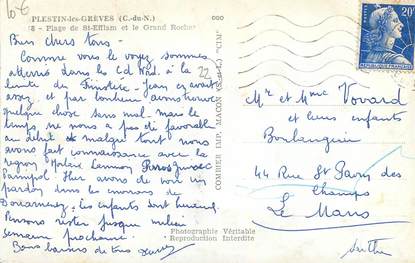 PLESTIN-les-GRÈVES (C.-du-N.)
28 - Plage de St-Efflam et le Grand Rocher
Bien chers tous -
Comme vous le voyez sommes
atterris dans les Cd Nrd. à la
limite du Finistère - Jean y avait
assez et par bonheur avons trouvé
quelque chose sans mal - mais le
temps ne nous a pas été favorable
au début - malgré tout nous
avons fait connaissance avec la
région Morlaix Lannion Perros Guirec
Paimpol - Hier avons de voir un
pardon dans les environs de
Douarnenez - Les enfants sont heureux.
Pensons rester jusque milieu
semaine prochaine.
Bons baisers de tous
COMBIER IMP. MACON (S.-&-L.) "CIM"
Photographie Véritable
Reproduction Interdite
20F
Mr et Mme Vovard
et leurs enfants
Boulangerie
44 Rue St Pavin des
Champs
Le Mans
Sarthe
22